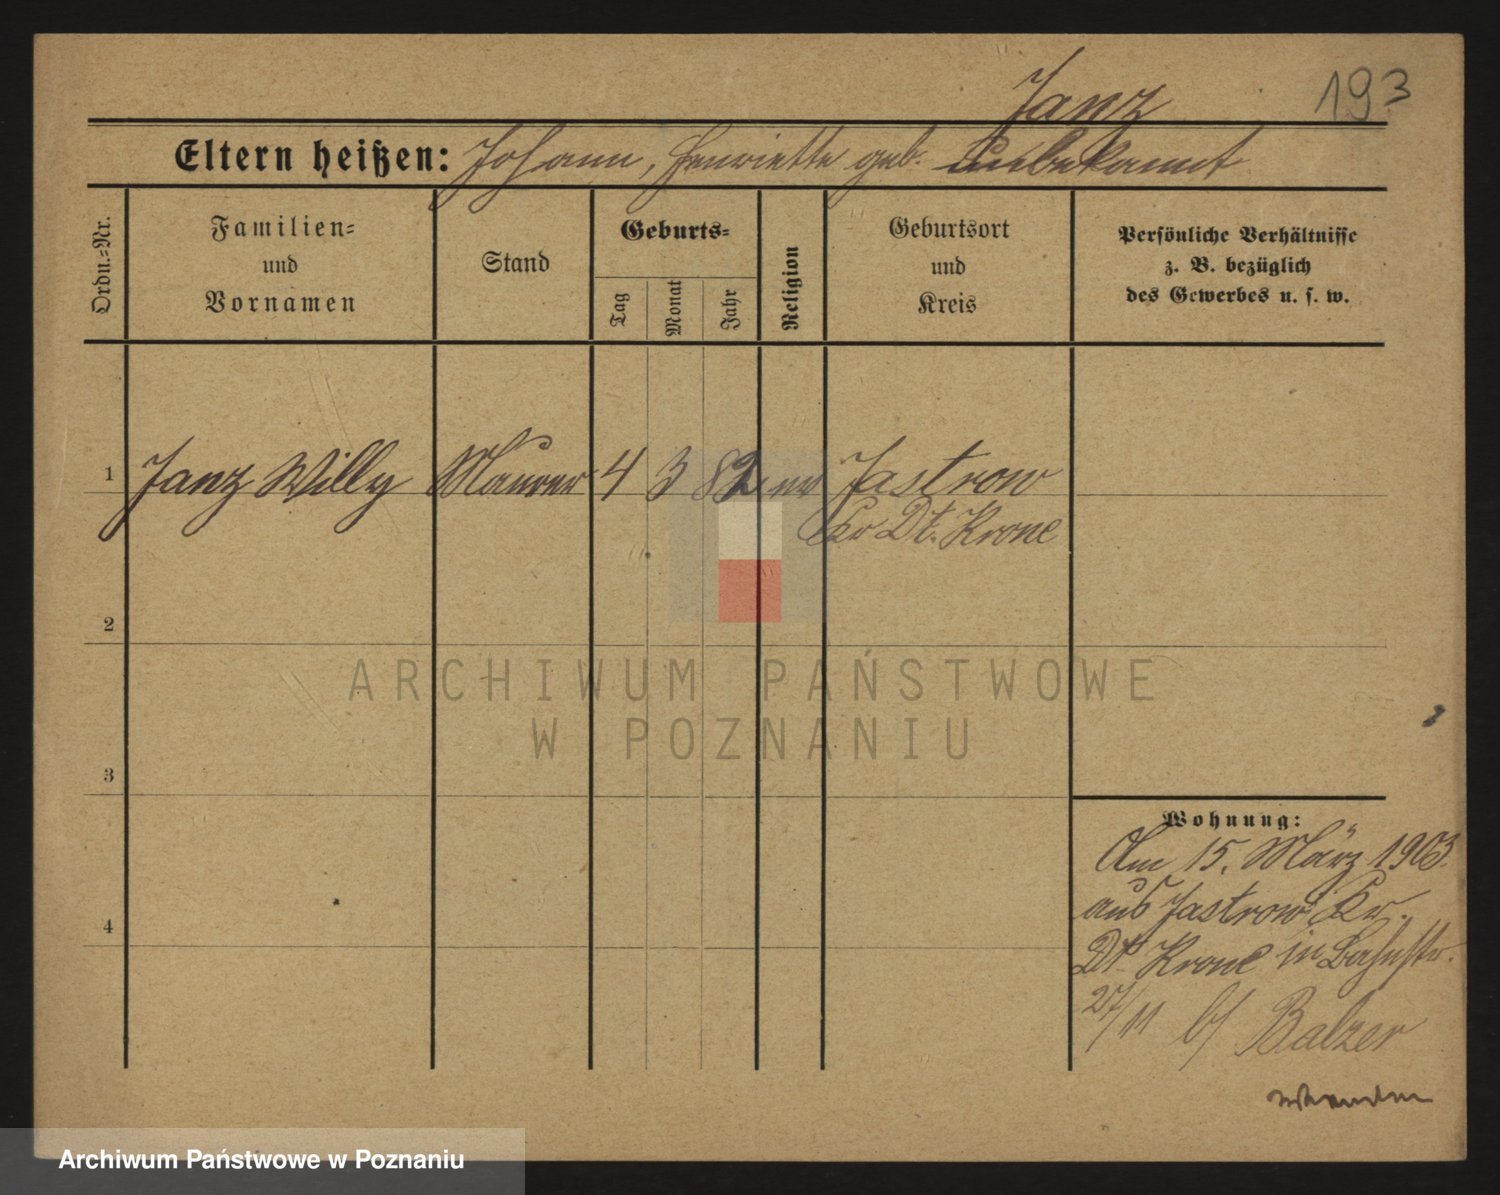 193
Janz
Eltern heißen: Johann, Henriette geb. Unbekannt
Ordn.=Nr.
Familien=
und
Vornamen
Stand
Geburts=
Tag
Monat
Jahr
Religion
Geburtsort
und
Kreis
Persönliche Verhältnisse
z. B. bezüglich
des Gewerbes u. s. w.
1 Janz Willy Maurer 4 3 82 ev Jastrow
Kr Dt. Krone
2
3
4
Wohnung:
Am 15. März 1903.
aus Jastrow Kr.
Dt. Krone in Bahnstr.
27/11 b/ Balzer
ARCHIWUM PAŃSTWOWE
W POZNANIU
Archiwum Państwowe w Poznaniu